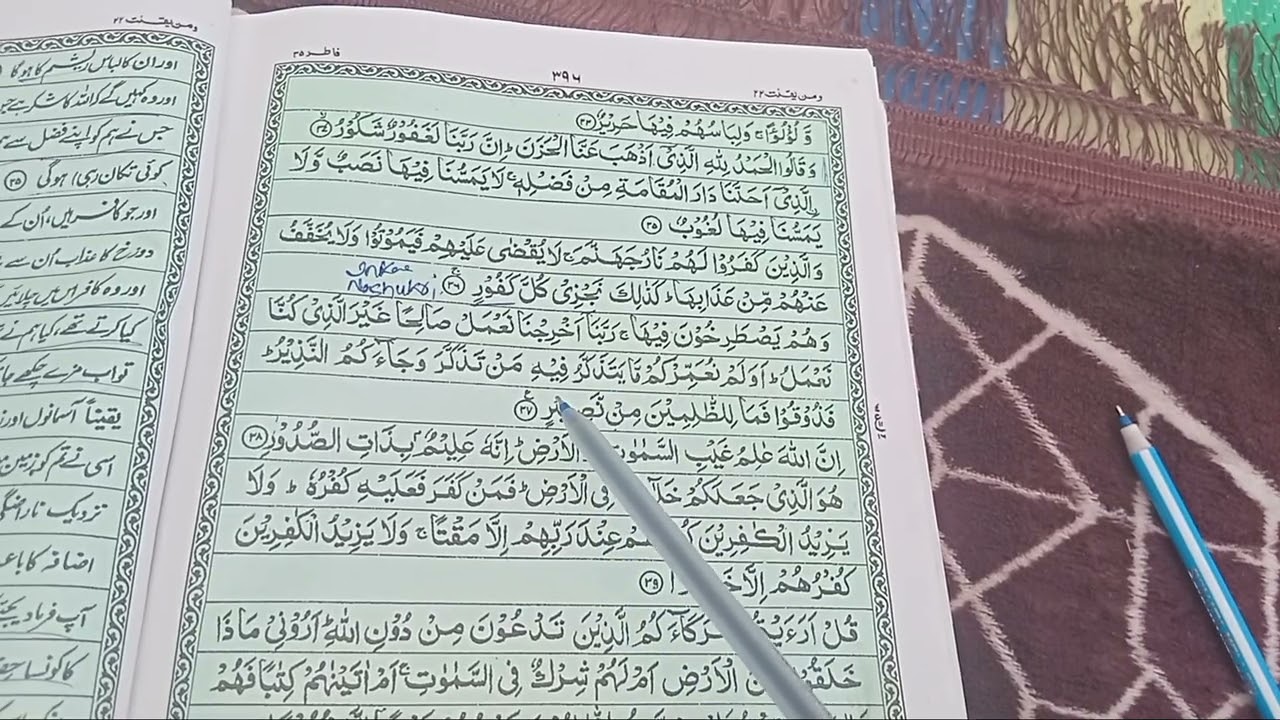 ومن یقنت ۲۲
اور ان کا لباس ریشم کا ہوگا
اور وہ کہیں گے کہ اللہ کا شکر ہے جس
جس نے ہم کو اپنے فضل سے
کوئی تکان (ہی) ہوگی ۳۵
اور جو کافر ہیں، اُن کے
دوزخ کا عذاب اُن سے
اور وہ کافر اس میں چلائیں
کیا کرتے تھے، کیا ہم نے
تو اب مزے چکھے جاؤ
یقیناً آسمانوں اور
اسی نے تم کو زمین میں
نزدیک ناراضگی
اضافہ کا باعث
آپ فرما دیجئے
کا کونسا حصہ
فاطر ۳۵
۳۹۶
ومن یقنت ۲۲
وَّ لُؤْلُؤًا ۚ وَلِبَاسُهُمْ فِيْهَا حَرِيْرٌ ۳۳
وَ قَالُوا الْحَمْدُ لِلّٰهِ الَّذِيْٓ اَذْهَبَ عَنَّا الْحَزَنَ ؕ اِنَّ رَبَّنَا لَغَفُوْرٌ شَكُوْرُ ۙ ۳۴
الَّذِيْٓ اَحَلَّنَا دَارَ الْمُقَامَةِ مِنْ فَضْلِهٖ ۚ لَا يَمَسُّنَا فِيْهَا نَصَبٌ وَّ لَا
يَمَسُّنَا فِيْهَا لُغُوْبٌ ۳۵
وَ الَّذِيْنَ كَفَرُوْا لَهُمْ نَارُ جَهَنَّمَ ۚ لَا يُقْضٰى عَلَيْهِمْ فَيَمُوْتُوْا وَ لَا يُخَفَّفُ
عَنْهُمْ مِّنْ عَذَابِهَا ؕ كَذٰلِكَ نَجْزِيْ كُلَّ كَفُوْرٍ ۚ ۳۶
وَ هُمْ يَصْطَرِخُوْنَ فِيْهَا ۚ رَبَّنَآ اَخْرِجْنَا نَعْمَلْ صَالِحًا غَيْرَ الَّذِيْ كُنَّا
نَعْمَلُ ؕ اَوَ لَمْ نُعَمِّرْكُمْ مَّا يَتَذَكَّرُ فِيْهِ مَنْ تَذَكَّرَ وَ جَآءَكُمُ النَّذِيْرُ ؕ
فَذُوْقُوْا فَمَا لِلظّٰلِمِيْنَ مِنْ نَّصِيْرٍ ۳۷
اِنَّ اللّٰهَ عٰلِمُ غَيْبِ السَّمٰوٰتِ وَ الْاَرْضِ ؕ اِنَّهٗ عَلِيْمٌۢ بِذَاتِ الصُّدُوْرِ ۳۸
هُوَ الَّذِيْ جَعَلَكُمْ فِي الْاَرْضِ ؕ فَمَنْ كَفَرَ فَعَلَيْهِ كُفْرُهٗ ؕ وَ لَا
يَزِيْدُ الْكٰفِرِيْنَ عِنْدَ رَبِّهِمْ اِلَّا مَقْتًا ۚ وَ لَا يَزِيْدُ الْكٰفِرِيْنَ
كُفْرُهُمْ اِلَّا ۳۹
قُلْ اَرَءَيْتُمْ شُرَكَآءَكُمُ الَّذِيْنَ تَدْعُوْنَ مِنْ دُوْنِ اللّٰهِ ؕ اَرُوْنِيْ مَا ذَا
خَلَقُوْا مِنَ الْاَرْضِ اَمْ لَهُمْ شِرْكٌ فِي السَّمٰوٰتِ ۚ اَمْ اٰتَيْنٰهُمْ كِتٰبًا فَهُمْ